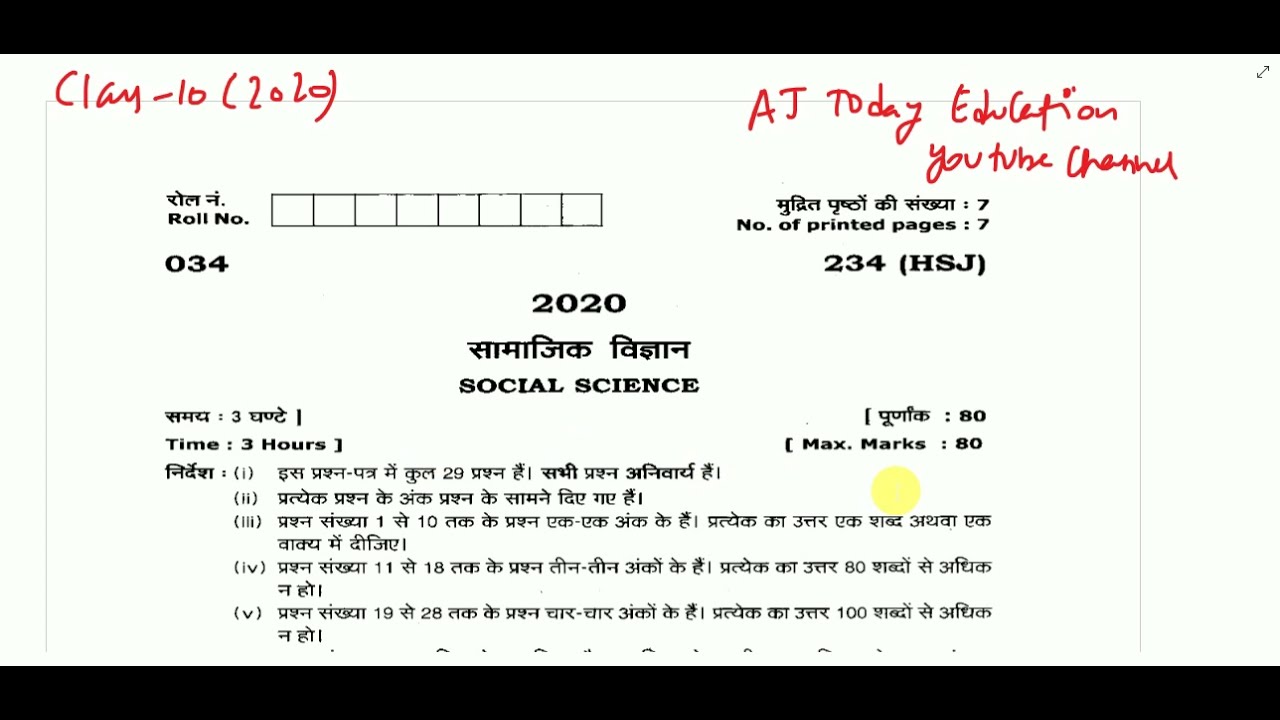 Class-10 (2020)
AJ Today Education
Youtube Channel
रोल नं.
Roll No.
मुद्रित पृष्ठों की संख्या : 7
No. of printed pages : 7
034
234 (HSJ)
2020
सामाजिक विज्ञान
SOCIAL SCIENCE
समय : 3 घण्टे ]
[ पूर्णांक : 80
Time : 3 Hours ]
[ Max. Marks : 80
निर्देश : (i) इस प्रश्न-पत्र में कुल 29 प्रश्न हैं। सभी प्रश्न अनिवार्य हैं।
(ii) प्रत्येक प्रश्न के अंक प्रश्न के सामने दिए गए हैं।
(iii) प्रश्न संख्या 1 से 10 तक के प्रश्न एक-एक अंक के हैं। प्रत्येक का उत्तर एक शब्द अथवा एक
वाक्य में दीजिए।
(iv) प्रश्न संख्या 11 से 18 तक के प्रश्न तीन-तीन अंकों के हैं। प्रत्येक का उत्तर 80 शब्दों से अधिक
न हो।
(v) प्रश्न संख्या 19 से 28 तक के प्रश्न चार-चार अंकों के हैं। प्रत्येक का उत्तर 100 शब्दों से अधिक
न हो।